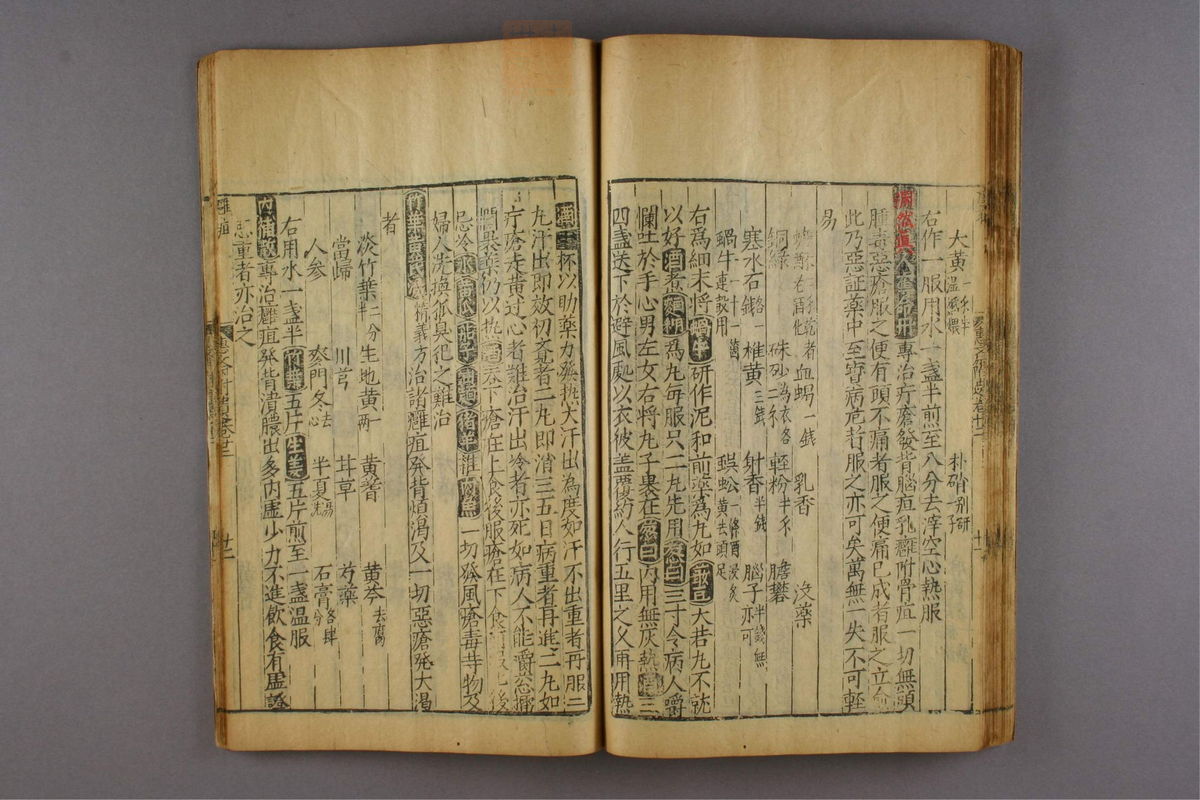 大黃 朴硝別研
右作一服用水一盞半煎至八分去滓空心熱服
專治疔瘡發背腦疽乳癰附骨疽一切無頭
腫毒惡瘡服之便有頭不痛者服之便痛已成者服之立愈
此乃惡証藥中至寶病危者服之亦可矣萬無一失不可輕
易
血蝎一錢 乳香 沒藥
硃砂二錢為衣 輕粉半 膽礬
寒水石 雄黃三錢 射香半錢 腦子半錢無亦可
蝸牛二十一箇連殼用 蜈蚣一條酒浸炙黃去頭足
右為細末將蝸牛研作泥和前藥為丸如菉豆大若丸不就
以好酒煮麵糊為丸每服只二丸先用葱白三寸令病人嚼
爛吐於手心男左女右將丸子裹在葱白內用無灰熱酒三
四盞送下於避風處以衣被盖覆約人行五里之久再用熱
酒一二杯以助藥力發熱大汗出為度如汗不出重者再服二
丸汗出即效初覺者二丸即消三五日病重者再進二丸如
疔瘡走黃過心者難治汗出冷者亦死如病人不能嚼葱擂
爛裹藥仍以熱酒吞下瘡在上食後服瘡在下食前服後
忌冷水黃瓜茄子油麵猪羊雜肉魚一切發風瘡毒等物及
婦人洗換狐臭犯之難治
竹葉黃芪湯 精義方治諸癰疽發背煩渴及一切惡瘡發大渴
者
淡竹葉二分 生地黃一兩 黃蓍 黃芩去腐
當歸 川芎 甘草 芍藥
人参 麥門冬去心 半夏湯泡 石膏各肆分
右用水一盞半竹葉五片生姜五片煎至一盞溫服
內補散 專治癰疽發背潰膿出多內虛少力不進飲食有虛證
患重者亦治之